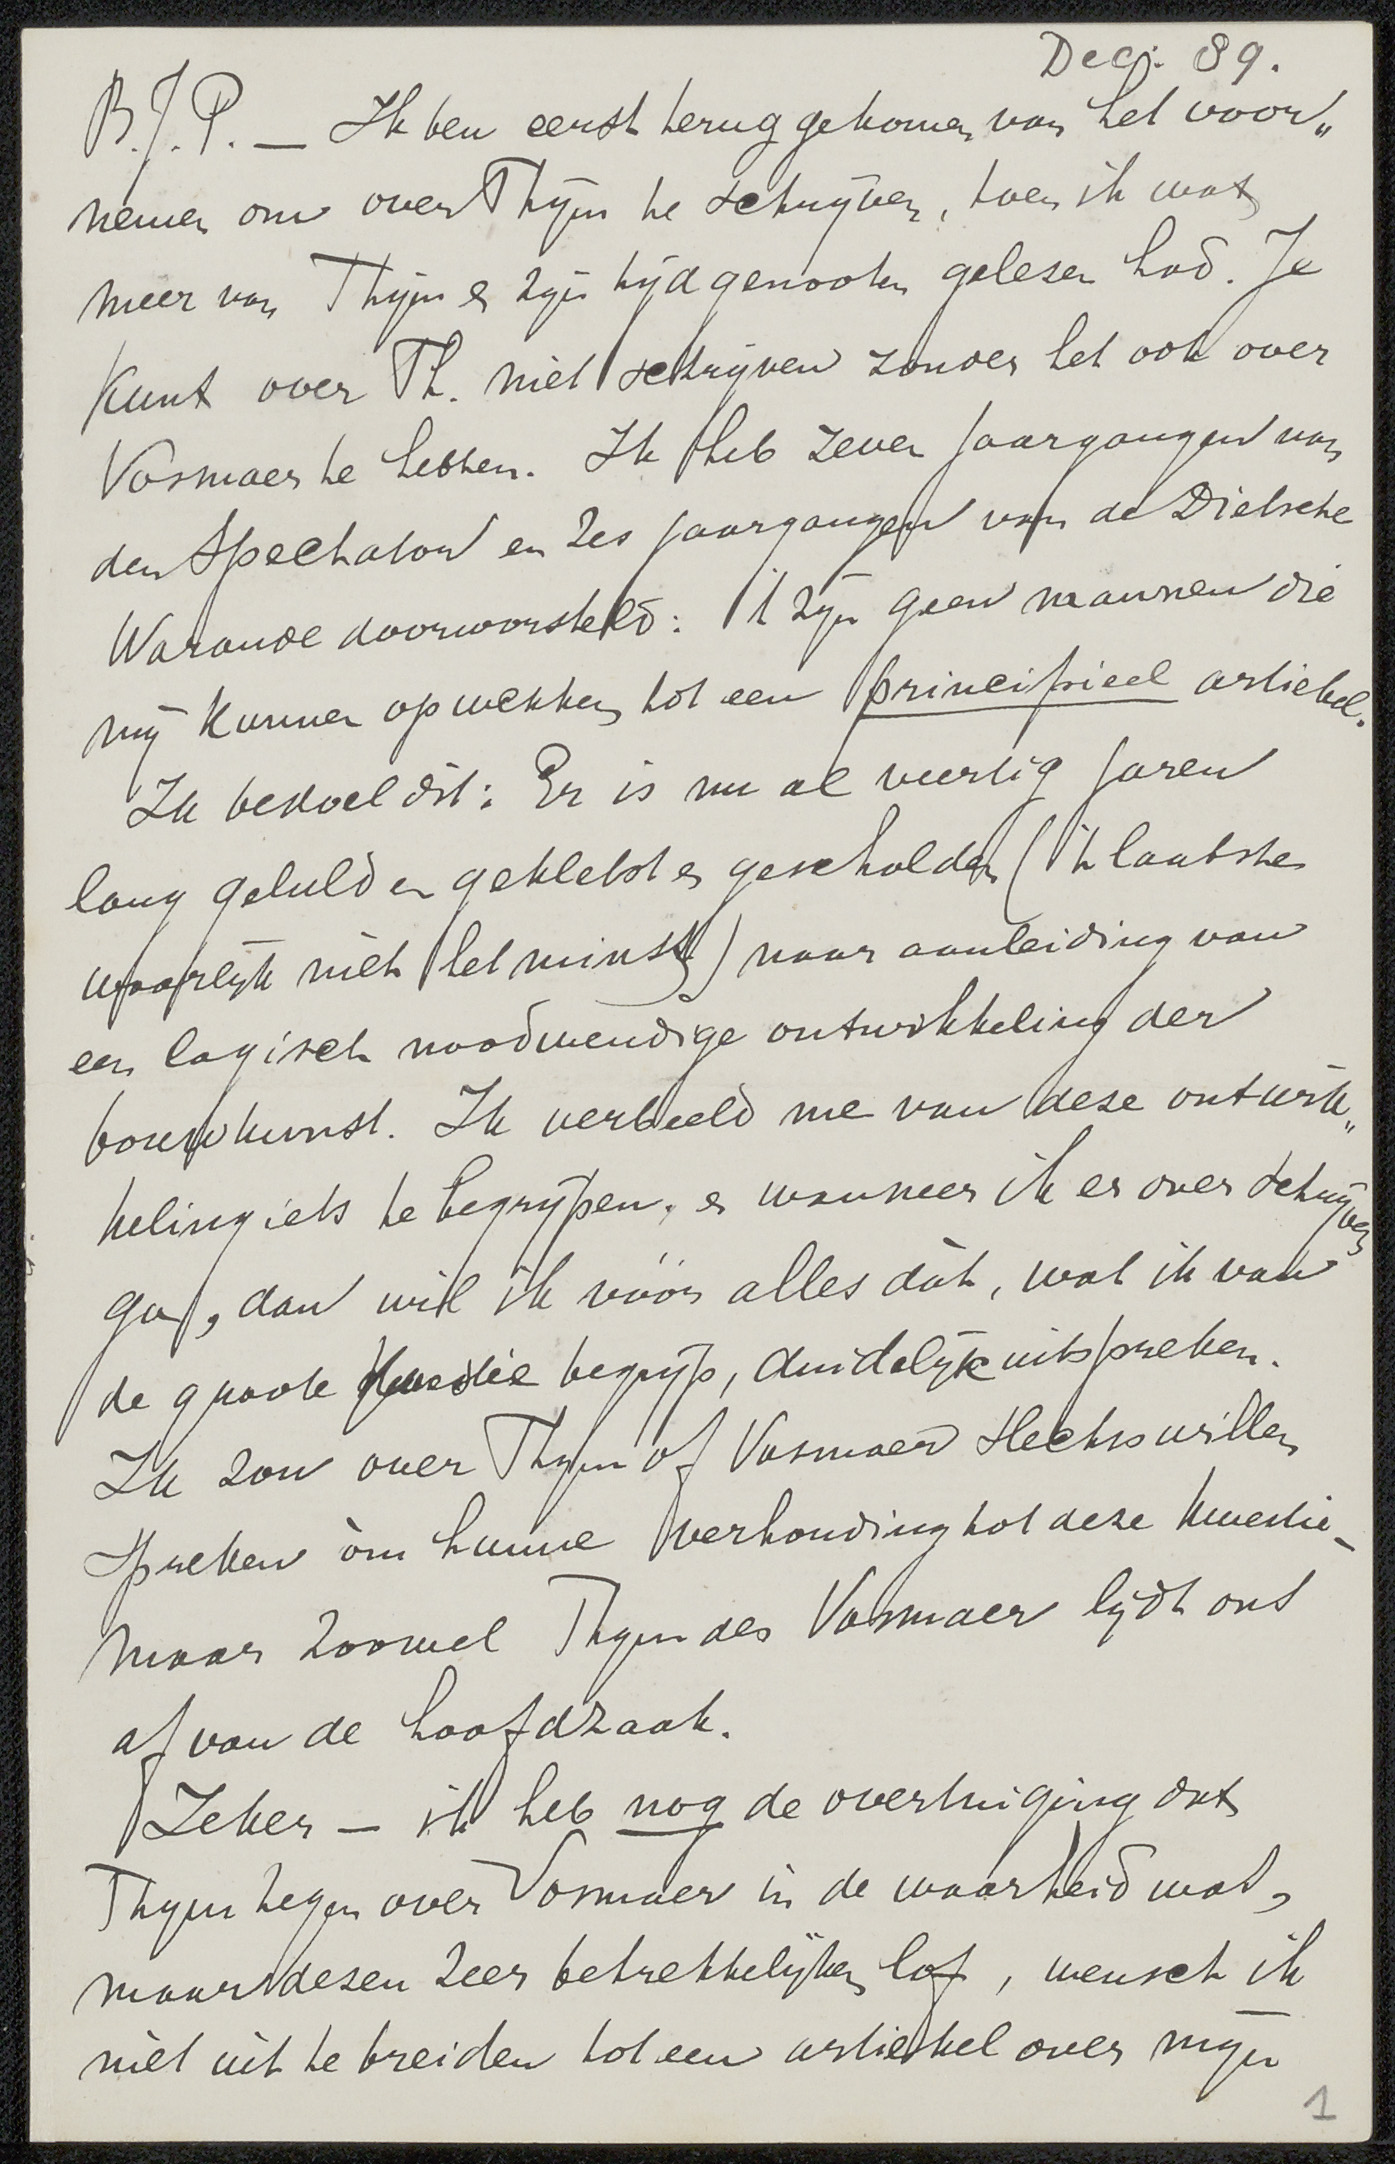 Dec: 89.
B.J.P. — Ik ben eerst teruggekomen van het voor„
nemen om over Thijm te schrijven, toen ik wat
meer van Thijm en zijn tijdgenooten gelesen had. Je
kunt over Th. niet schrijven zonder het ook over
Vosmaer te hebben. Ik heb zeven jaargangen van
den Spectator en zes jaargangen van de Dietsche
Warande doorworsteld: 't zijn geen mannen die
mij kunnen opwekken tot een principieel artiekel.
Ik bedoel dit: Er is nu al veertig jaren
lang geluld en gekletst en gescholden ('t laatste
waarlijk niet het minst) naar aanleiding van
een logisch noodwendige ontwikkeling der
bouwkunst. Ik verbeeld me van deze ontwik„
keling iets te begrijpen, en wanneer ik er over schrijven
ga, dan wil ik vóór alles dàt, wat ik van
de groote kwestie begrijp, duidelijk uitspreken.
Ik zou over Thijm of Vosmaer slechts willen
spreken òm hunne verhouding tot deze kwestie –
maar zoowel Thijm als Vosmaer lijdt ons
af van de hoofdzaak.
Zeker — ik heb nog de overtuiging dat
Thijm tegenover Vosmaer in de waarheid was,
maar dezen zeer betrekkelijken lof, wensch ik
niet uit te breiden tot een artiekel over mijn
1